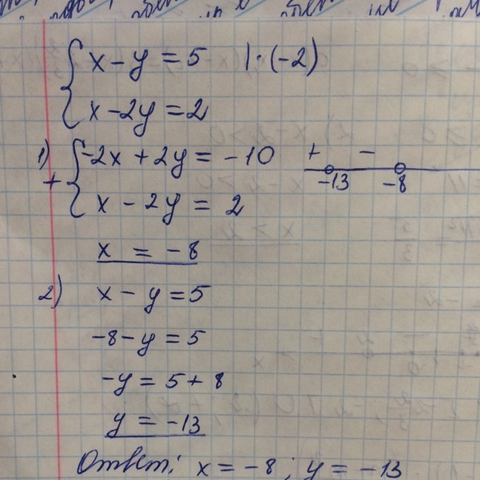 x - y = 5 | · (-2)
x - 2y = 2
1) -2x + 2y = -10
+ x - 2y = 2
+ -
-13 -8
x = -8
2) x - y = 5
-8 - y = 5
-y = 5 + 8
y = -13
Ответ: x = -8; y = -13